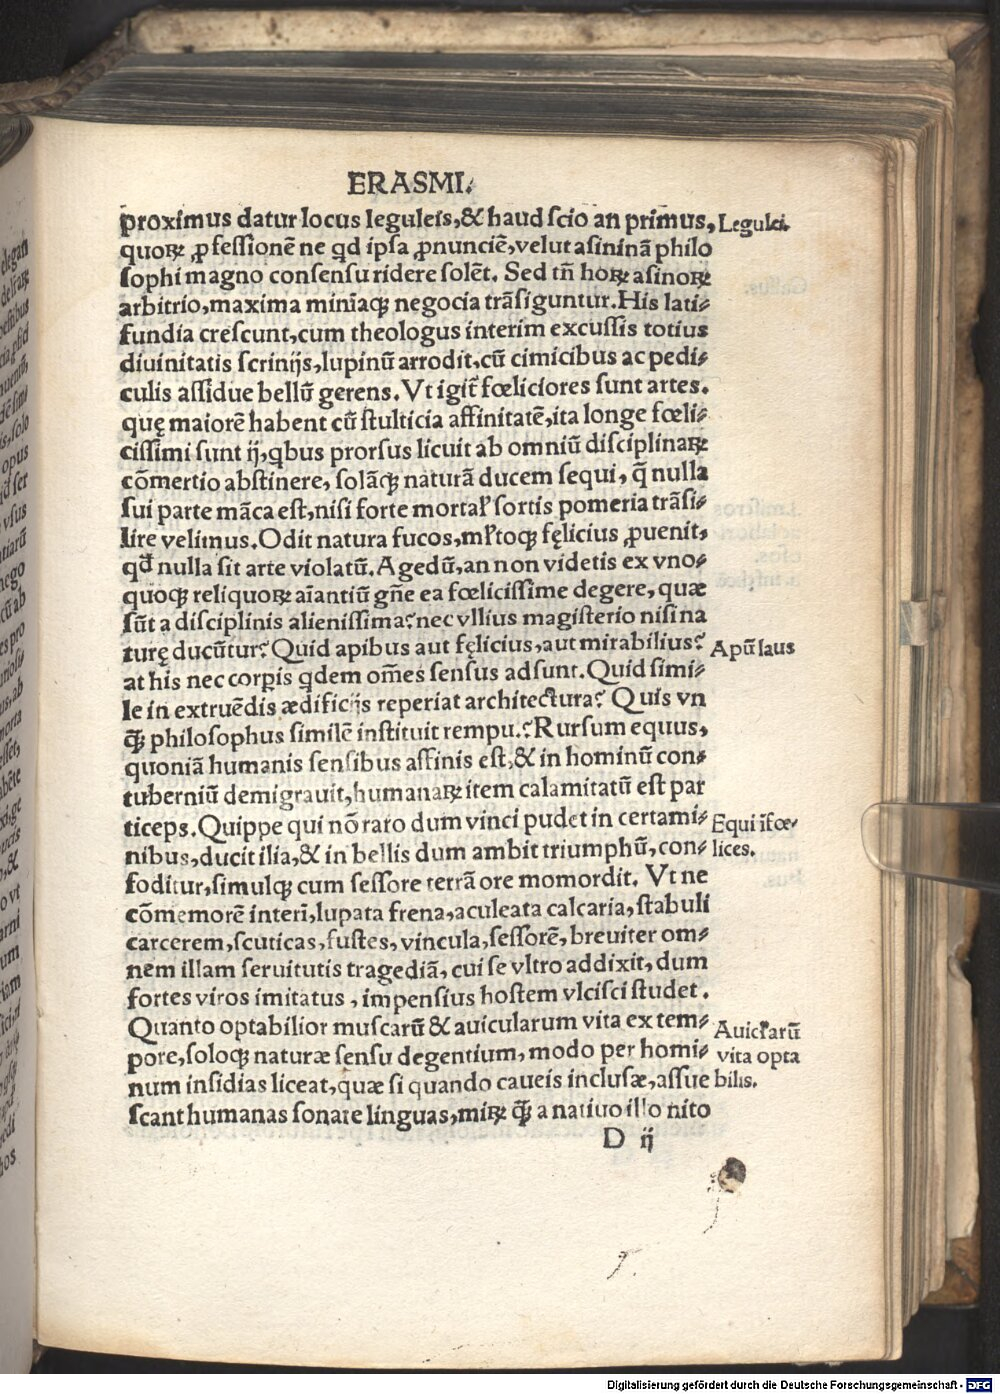 ERASMI.
proximus datur locus leguleis,& haud scio an primus, Legulei.
quoꝝ ꝓfessionē ne qd ipsa ꝓnunciē,velut asininā philo
sophi magno consensu ridere solēt. Sed tñ hoꝝ asinoꝝ
arbitrio,maxima miniaqꝫ negocia trāsiguntur.His lati⸗
fundia crescunt,cum theologus interim excussis totius
divinitatis scrinijs,lupinū arrodit,cū cimicibus ac pedi⸗
culis assidue bellū gerens.Vt igit̃ fœliciores sunt artes.
quę maiorē habent cū stulticia affinitatē,ita longe fœli⸗
cissimi sunt ij,qbus prorsus licuit ab omniū disciplinaꝝ
cōmertio abstinere, solāqꝫ naturā ducem sequi, q̄ nulla
sui parte māca est,nisi forte mortał sortis pomeria trāsi⸗
lire velimus.Odit natura fucos,młtoqꝫ fęlicius ꝓuenit,
qđ nulla sit arte violatū.Agedū,an non videtis ex vno⸗
quoqꝫ reliquoꝝ aīantiū gñe ea fœlicissime degere, quæ
sūt a disciplinis alienissima?nec vllius magisterio nisi na
turę ducūtur?Quid apibus aut fęlicius,aut mirabilius? Apū laus
at his nec corpis qdem om̄es sensus adsunt.Quid simi⸗
le in extruēdis ædificijs reperiat architectura? Quis vn
qꝫ̄ philosophus similē instituit rempu.?Rursum equus,
quoniā humanis sensibus affinis est,& in hominū con⸗
tuberniū demigrauit,humanaꝝ item calamitatū est par
ticeps.Quippe qui nō raro dum vinci pudet in certami⸗ Equi īfœ⸗
nibus,ducit ilia,& in bellis dum ambit triumphū,con⸗ lices.
foditur,simulqꝫ cum sessore terrā ore momordit. Vt ne
cōmemorē interī,lupata frena,aculeata calcaria,stabuli
carcerem,scuticas,fustes,vincula,sessorē,breuiter om⸗
nem illam seruitutis tragediā,cui se vltro addixit,dum
fortes viros imitatus , impensius hostem vlcisci studet.
Quanto optabilior muscarū & auicularum vita ex tem⸗ Auicłarū
pore,soloqꝫ naturæ sensu degentium,modo per homi⸗ vita opta
num insidias liceat,quæ si quando caueis inclusæ,assue bilis.
scant humanas sonare linguas,miꝝ qꝫ̄ a natiuo illo nito
D ij
Digitalisierung gefördert durch die Deutsche Forschungsgemeinschaft - DFG